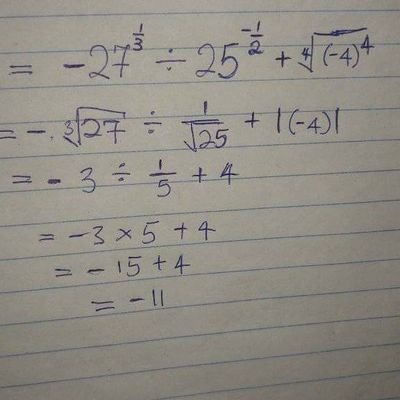 = -27^{\frac{1}{3}} ÷ 25^{-\frac{1}{2}} + \sqrt[4]{(-4)^4}
= -\sqrt[3]{27} ÷ \frac{1}{\sqrt{25}} + |(-4)|
= -3 ÷ \frac{1}{5} + 4
= -3 × 5 + 4
= -15 + 4
= -11